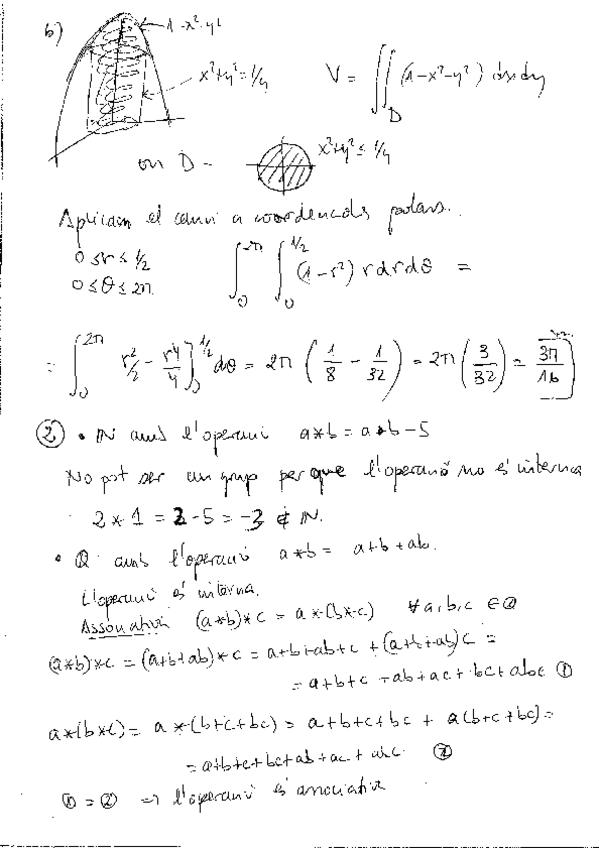 b)
1-x²-y²
x²+y²=1/4
V = ∬_D (1-x²-y²) dxdy
on D = x²+y² ≤ 1/4
Aplicam el canvi a coordenades polars.
0≤r≤1/2
0≤θ≤2π
∫₀^{2π} ∫₀^{1/2} (1-r²) r dr dθ =
= ∫₀^{2π} r²/2 - r⁴/4 ]₀^{1/2} dθ = 2π (1/8 - 1/32) = 2π (3/32) = 3π/16
② • IN amb l'operació a*b = a·b-5
No pot ser un grup perque l'operació no és interna
2*1 = 2-5 = -3 ∉ IN.
• Q amb l'operació a*b = a+b+ab.
L'operació és interna.
Associativa (a*b)*c = a*(b*c) ∀a,b,c ∈ Q
(a*b)*c = (a+b+ab)*c = a+b+ab+c + (a+b+ab)c =
= a+b+c+ab+ac+bc+abc ①
a*(b*c) = a*(b+c+bc) = a+b+c+bc + a(b+c+bc) =
= a+b+c+bc+ab+ac+abc. ②
① = ② ⇒ l'operació és associativa